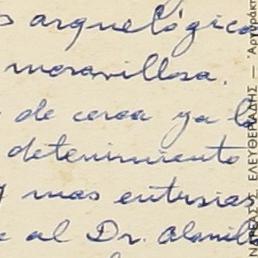 s arqueológica
maravillosa.
de cerca ya l
detenimiento
y mas entusias
e al Dr. Alamill
ΕΛΕΥΘΕΡΙΑΔΗΣ — "Αργυράκη